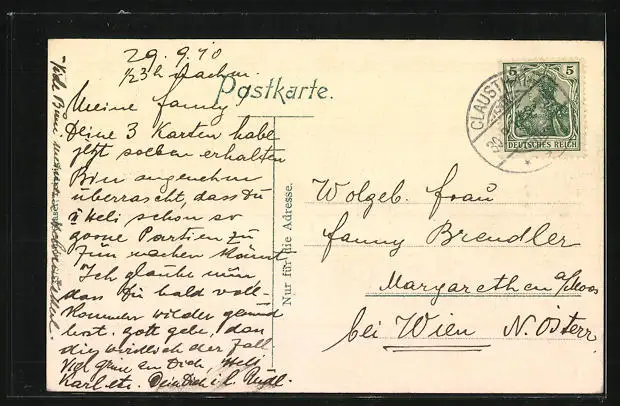 29.9.10
1/2 3 h nachm.
Postkarte.
Meine Fanny!
Deine 3 Karten habe
jetzt soeben erhalten
Bin angenehm
überrascht, dass Du
Heli schon so
grosse Partien zu
Fuss machen könnt
Ich glaube nun
dass Du bald voll-
kommen wieder gesund
bist. gott gebe, dass
dies wirklich der Fall
Viel grüsse an Dich, Heli
Karl etc. Dein Dich Rudl.
Nur für die Adresse.
CLAUST
5 5
DEUTSCHES REICH
Wolgeb. Frau
Fanny Brendler
Margarethen a/Moos
bei Wien N. Österr.